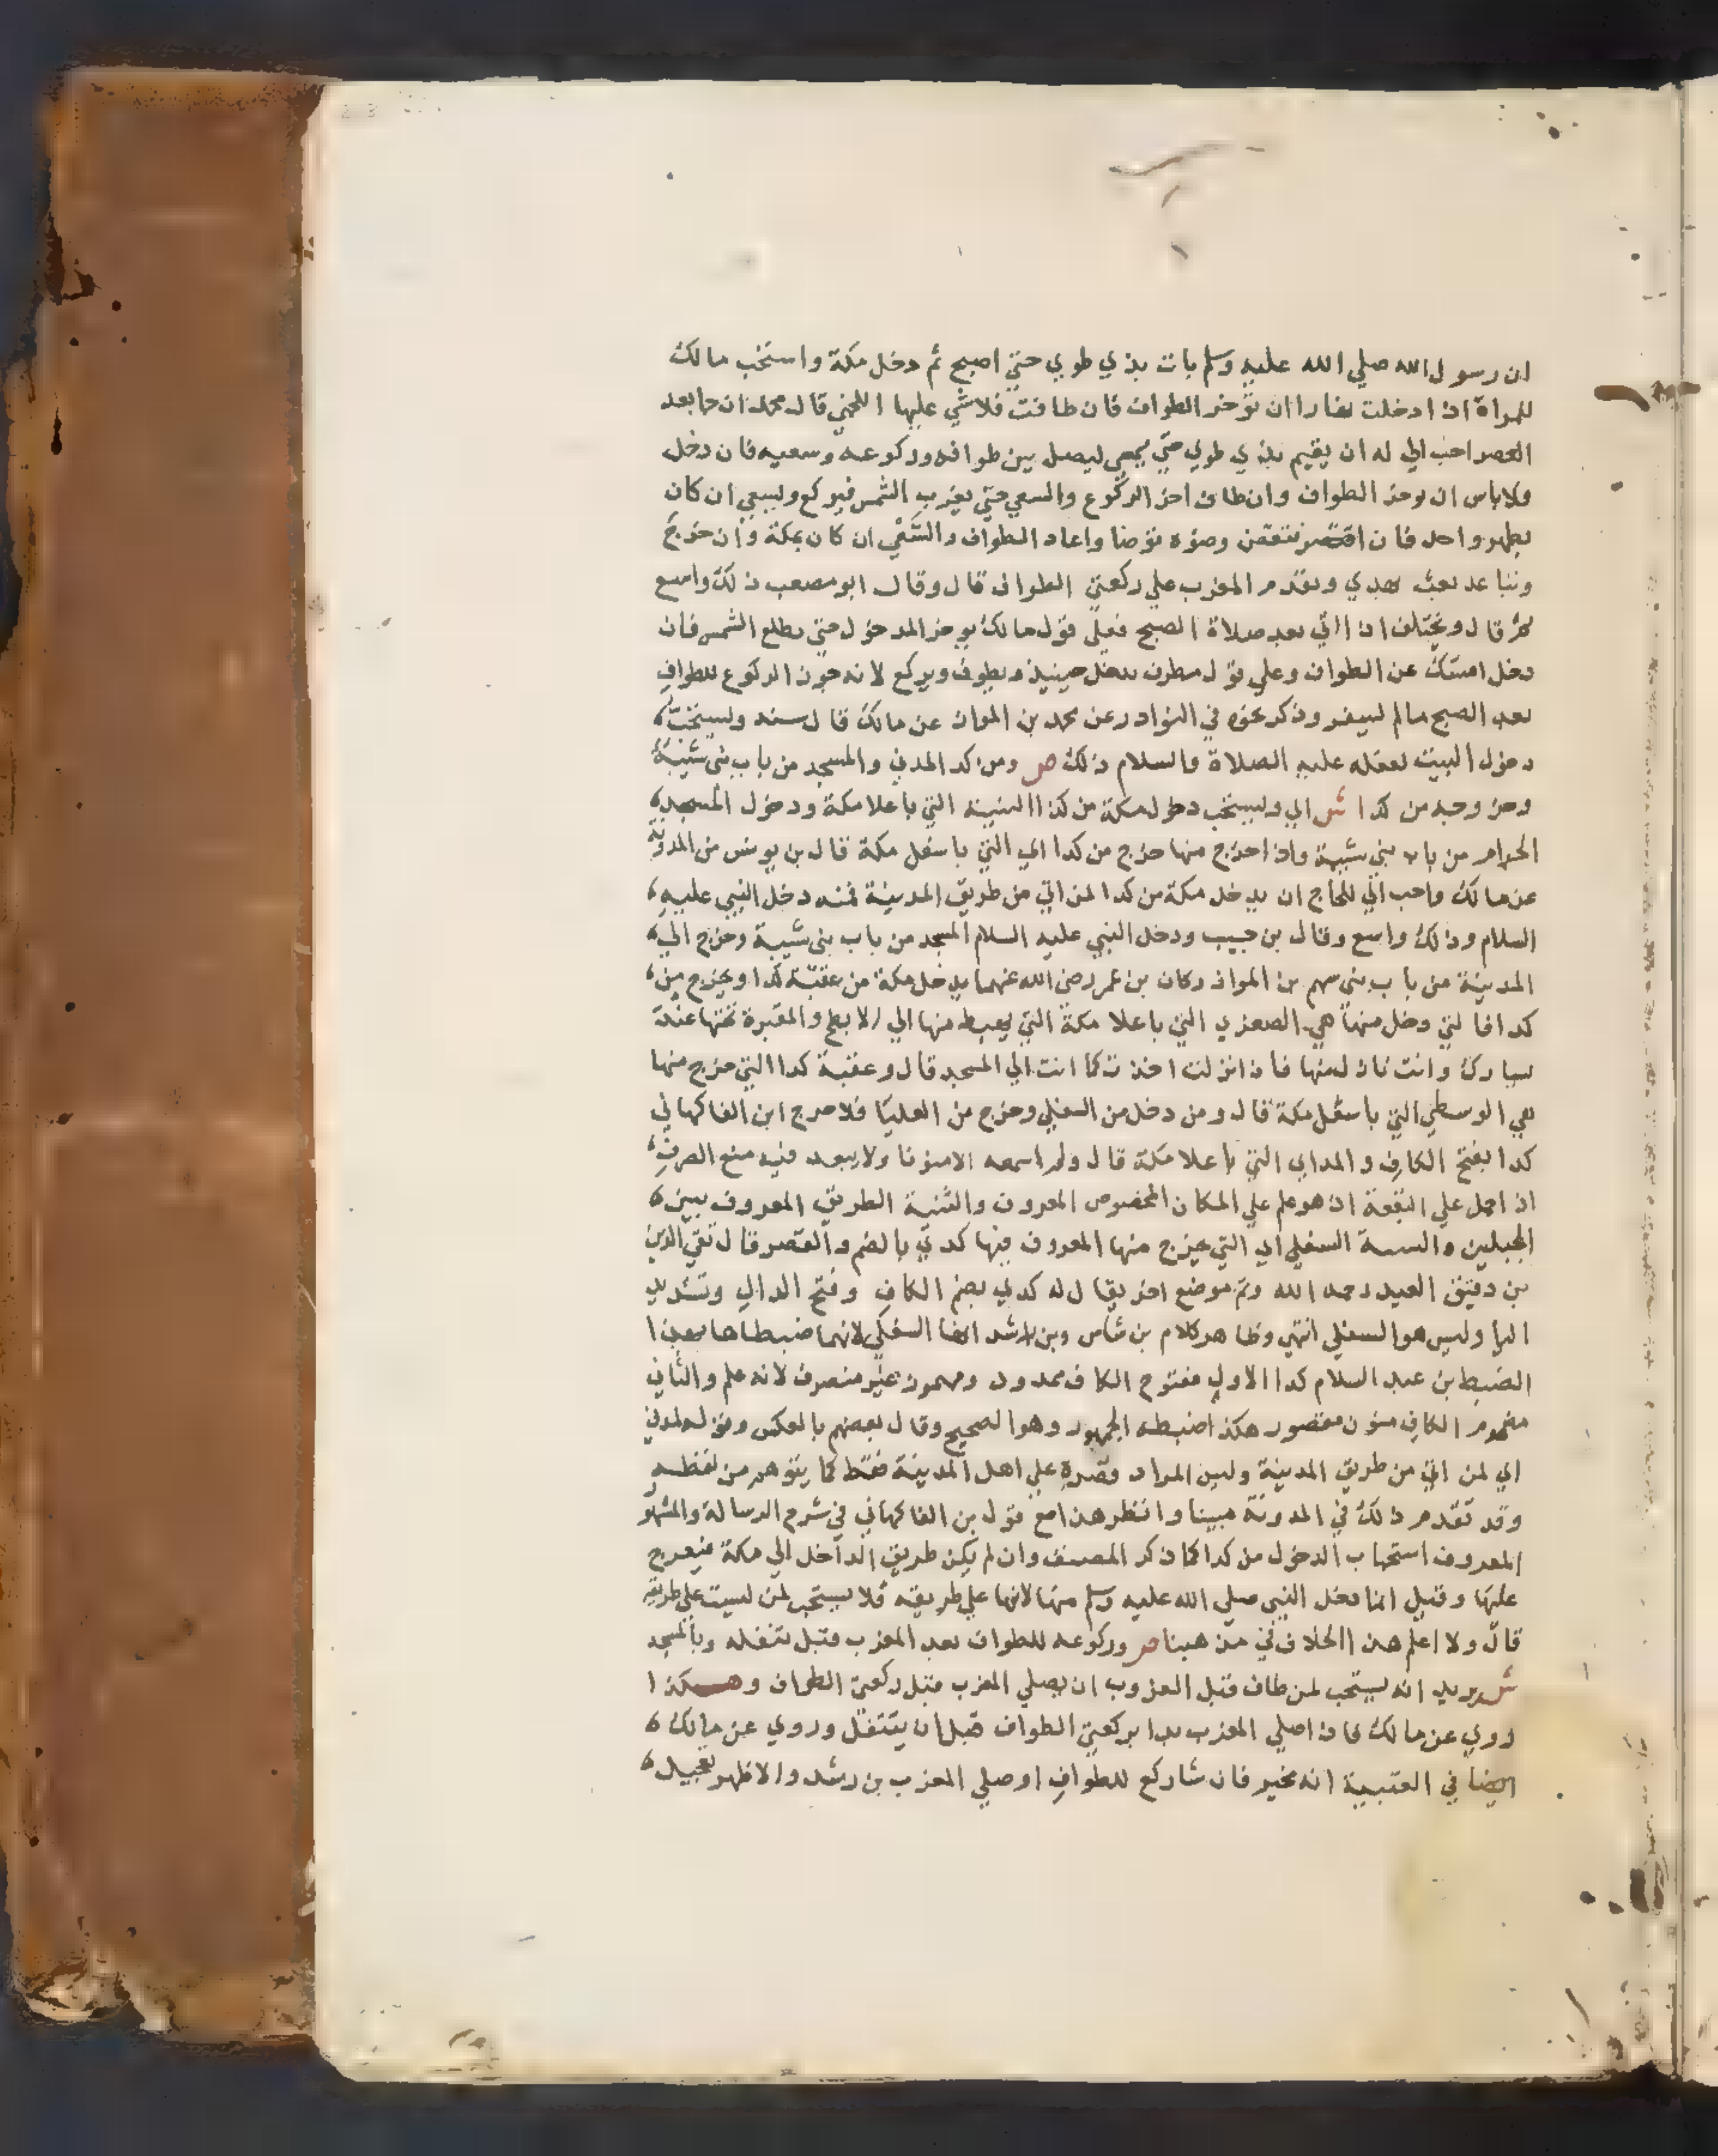 ان رسول الله صلي الله عليه وسلم بات بذي طوي حتي اصبح ثم دخل مكة واستحب مالك
للمراة اذا دخلت نهارا ان توخر الطواف فان طافت فلاشي عليها اللخمي قال محمد ان جا بعد
العصر احب الي له ان يقيم بذي طوي حتي يمسي ليصل بين طوافه وركوعه وسعيه فان دخل
ولاباس ان يوخر الطواف وان طاف اخر الركوع والسعي حتي تغرب الشمس فيركع ويسعي ان كان
بطهر واحد فان انتقض وضؤه توضا واعاد الطواف والسعي ان كان بمكة وان خرج
وتباعد بعث بهدي ويقدم المغرب علي ركعتي الطواف قال وقال ابو مصعب ذلك واسع
قال ويختلف اذا اتي بعد صلاة الصبح فعلي قول مالك يوخر الدخول حتي تطلع الشمس فان
دخل امسك عن الطواف وعلي قول مطرف يدخل حينيذ ويطوف ويركع لانه جوز الركوع للطواف
بعد الصبح مالم يسفر وذكر نحوه في النوادر عن محمد بن المواز عن مالك قال سند ويستحب
دخول البيت لفعله عليه الصلاة والسلام ذلك ص ومن كدا المدني والمسجد من باب بني شيبة
وخروجه من كدا ش اي ويستحب دخول مكة من كدا الثنية التي باعلا مكة ودخول المسجد
الحرام من باب بني شيبة واذا خرج منها خرج من كدا اي التي باسفل مكة قال بن يونس من المدونة
عن مالك واحب الي للحاج ان يدخل مكة من كدا لمن اتي من طريق المدينة فمنه دخل النبي عليه
السلام وذلك واسع وقال بن حبيب ودخل النبي عليه السلام المسجد من باب بني شيبة وخرج الي
المدينة من باب بني سهم بن المواز وكان بن عمر رضي الله عنهما يدخل مكة من عقبة كدا ويخرج من
كدا فالتي دخل منها هي الصغري التي باعلا مكة التي يهبط منها الي الابطح والمقبرة تحتها عند
يسارك وانت نازل منها فاذا نزلت اخذت كما انت الي المسجد قال وعقبة كدا التي خرج منها
هي الوسطي التي باسفل مكة قال ومن دخل من السفلي وخرج من العليا فلا حرج ابن الفاكهاني
كدا بفتح الكاف والمد اي التي باعلا مكة قال ولم اسمعه الا منونا ولا يبعد فيه منع الصرف
اذا حمل علي البقعة اذ هو علم علي المكان المخصوص المعروف والثنية الطريق المعروف بين
الجبلين والثنية السفلي اي التي خرج منها المعروف فيها كدي بالضم والقصر قال تقي الدين
بن دقيق العيد رحمه الله وثم موضع اخر يقال له كدي بضم الكاف وفتح الدال وتشديد
اليا وليس هو السفلي انتهي وظاهر كلام بن شاس وبن راشد انها السفلي لانهما ضبطاها بهذا
الضبط بن عبد السلام كدا الاول مفتوح الكاف ممدود ومهموز غير منصرف لانه علم والثاني
مضموم الكاف منون مقصور هكذا ضبطه الجمهور وهو الصحيح وقال بعضهم بالعكس وقوله لمدني
اي لمن اتي من طريق المدينة وليس المراد قصره علي اهل المدينة فقط كما يتوهم من لفظه
وقد تقدم ذلك في المدونة مبينا وانظر هذا مع قول بن الفاكهاني في شرح الرسالة والمشهور
المعروف استحباب الدخول من كدا كما ذكر المصنف وان لم يكن طريق الداخل الي مكة فيعرج
عليها وقيل انما دخل النبي صلي الله عليه وسلم منها لانها علي طريقه فلا يستحب لمن ليست علي طريقه
قال ولا اعلم هذا الخلاف في مذهبنا ص وركوعه للطواف بعد المغرب قبل تنفله وبالمسجد
ش يريد انه يستحب لمن طاف قبل الغروب ان يصلي المغرب قبل ركعتي الطواف وهكذا
روي عن مالك فاذا صلي المغرب بدا بركعتي الطواف قبل ان يتنفل وروي عن مالك
ايضا في العتبية انه مخير فان شا ركع للطواف او صلي المغرب بن رشد والاظهر تعجيل